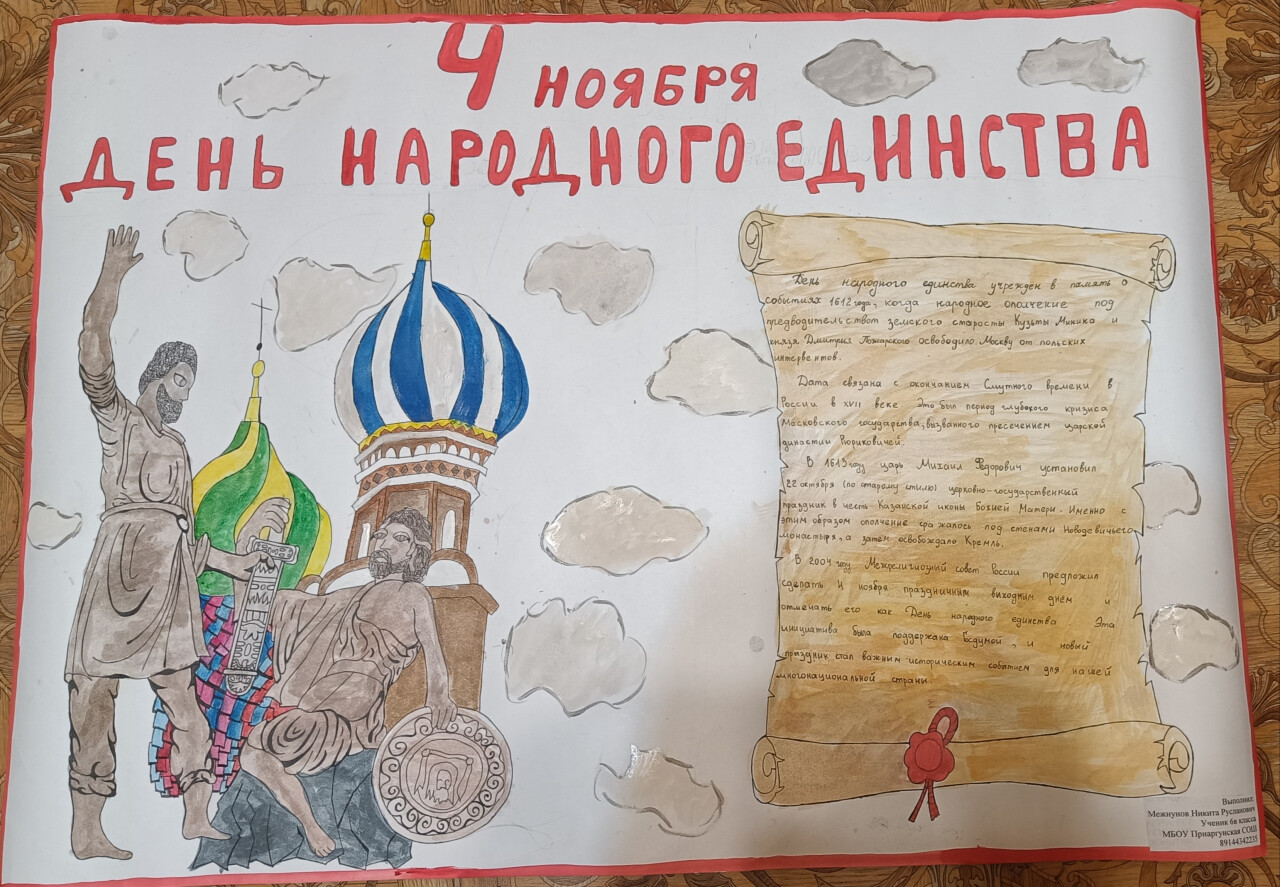 4 НОЯБРЯ
ДЕНЬ НАРОДНОГО ЕДИНСТВА
День народного единства учрежден в память о
событиях 1612 года, когда народное ополчение под
предводительством земского старосты Кузьмы Минина и
князя Дмитрия Пожарского освободило Москву от польских
интервентов.
Дата связана с окончанием Смутного времени в
России в XVII веке Это был период глубокого кризиса
Московского государства, вызванного пресечением царской
династии Рюриковичей.
В 1613 году царь Михаил Федорович установил
22 октября (по старому стилю) церковно-государственный
праздник в честь Казанской иконы Божией Матери. Именно с
этим образом ополчение сражалось под стенами Новодевичьего
монастыря, а затем освобождало Кремль.
В 2004 году Межрелигиозный совет России предложил
сделать 4 ноября праздничным выходным днём и
отмечать его как День народного единства Эта
инициатива была поддержана Госдумой, и новый
праздник стал важным историческим событием для нашей
многонациональной страны.
Выполнил:
Межнунов Никита Русланович
Ученик 6в класса
МБОУ Приаргунская СОШ
89144342235